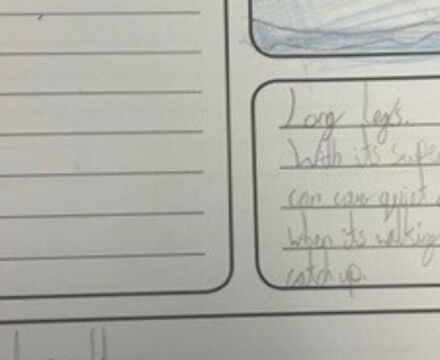 Long legs.
With its supe
can
when its walking
catch up.